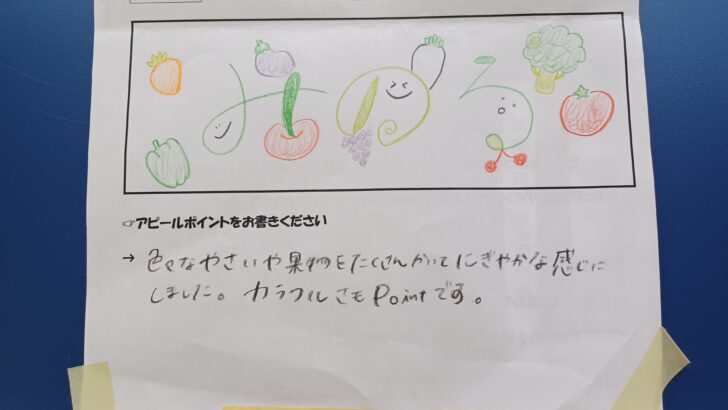 みのる
☞アピールポイントをお書きください
→ 色々なやさいや果物をたくさんかいてにぎやかな感じに
しました。カラフルさもPointです。